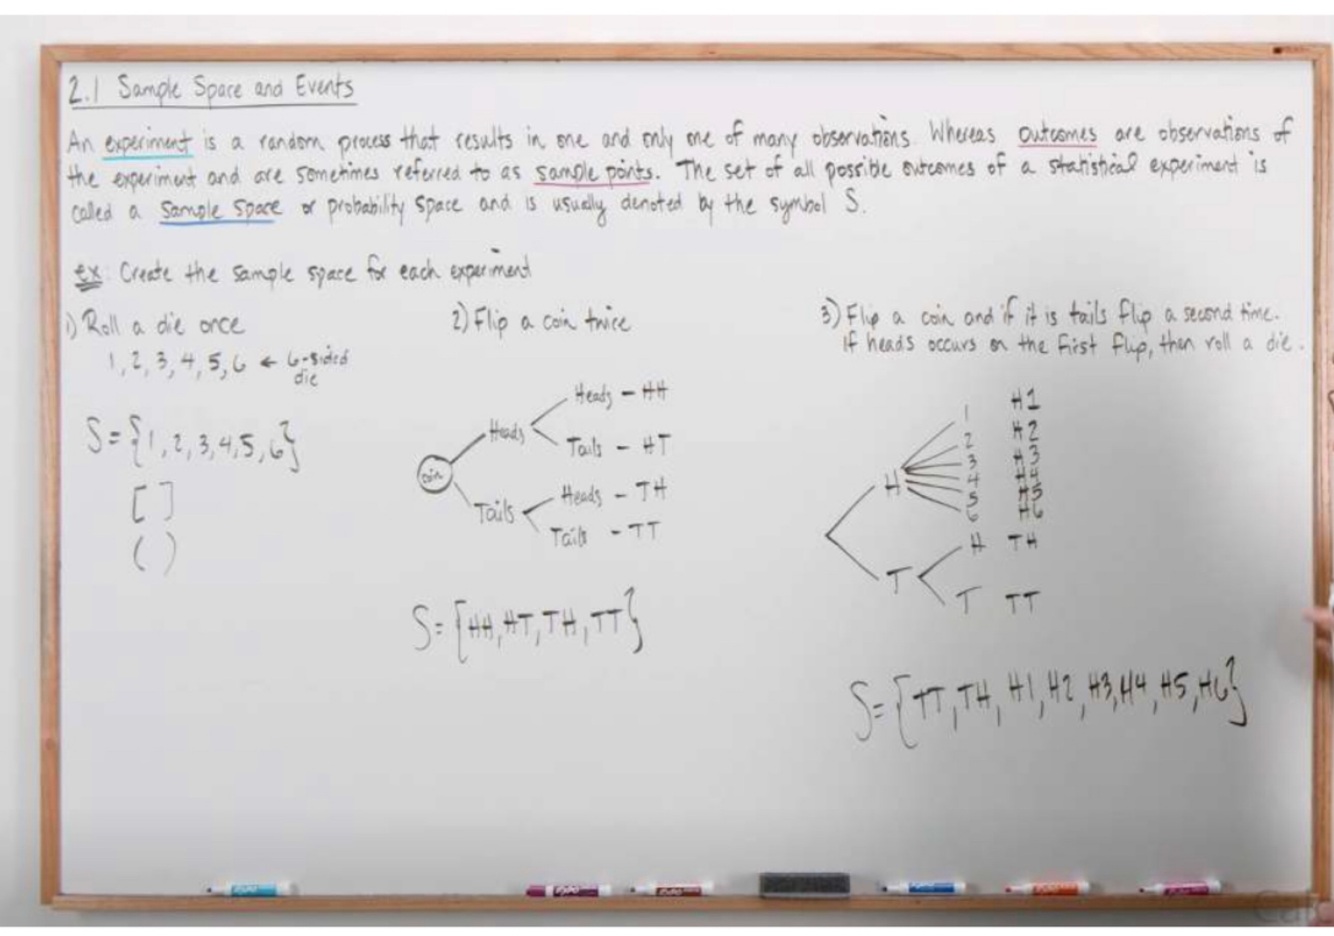 2.1 Sample Space and Events
An experiment is a random process that results in one and only one of many observations. Whereas outcomes are observations of
the experiment and are sometimes referred to as sample points. The set of all possible outcomes of a statistical experiment is
called a sample space or probability space and is usually denoted by the symbol S.
ex: Create the sample space for each experiment
1) Roll a die once
1, 2, 3, 4, 5, 6 ← 6-sided
die
S = {1, 2, 3, 4, 5, 6}
[ ]
( )
2) Flip a coin twice
Heads - HH
Heads
Tails - HT
Coin
Heads - TH
Tails
Tails - TT
S = {HH, HT, TH, TT}
3) Flip a coin and if it is tails flip a second time.
If heads occurs on the first flip, then roll a die.
1 H1
2 H2
3 H3
H 4 H4
5 H5
6 H6
H TH
T
T TT
S = {TT, TH, H1, H2, H3, H4, H5, H6}